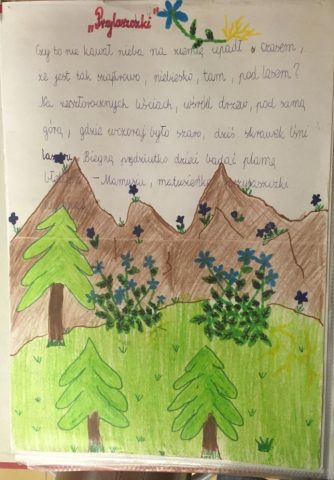 "Przylaszczki"
Czy to nie kawał nieba na ziemię upadł czasem,
że jest tak szafirowo, niebiesko, tam, pod lasem?
Na zeszłorocznych liściach, wśród drzew, pod samą
górą, gdzie wczoraj było szaro, dziś skrawek lśni
lazuru. Biegną prędziutko dzieci badać plamę
- Mamusiu, matusieńko, przylaszczki